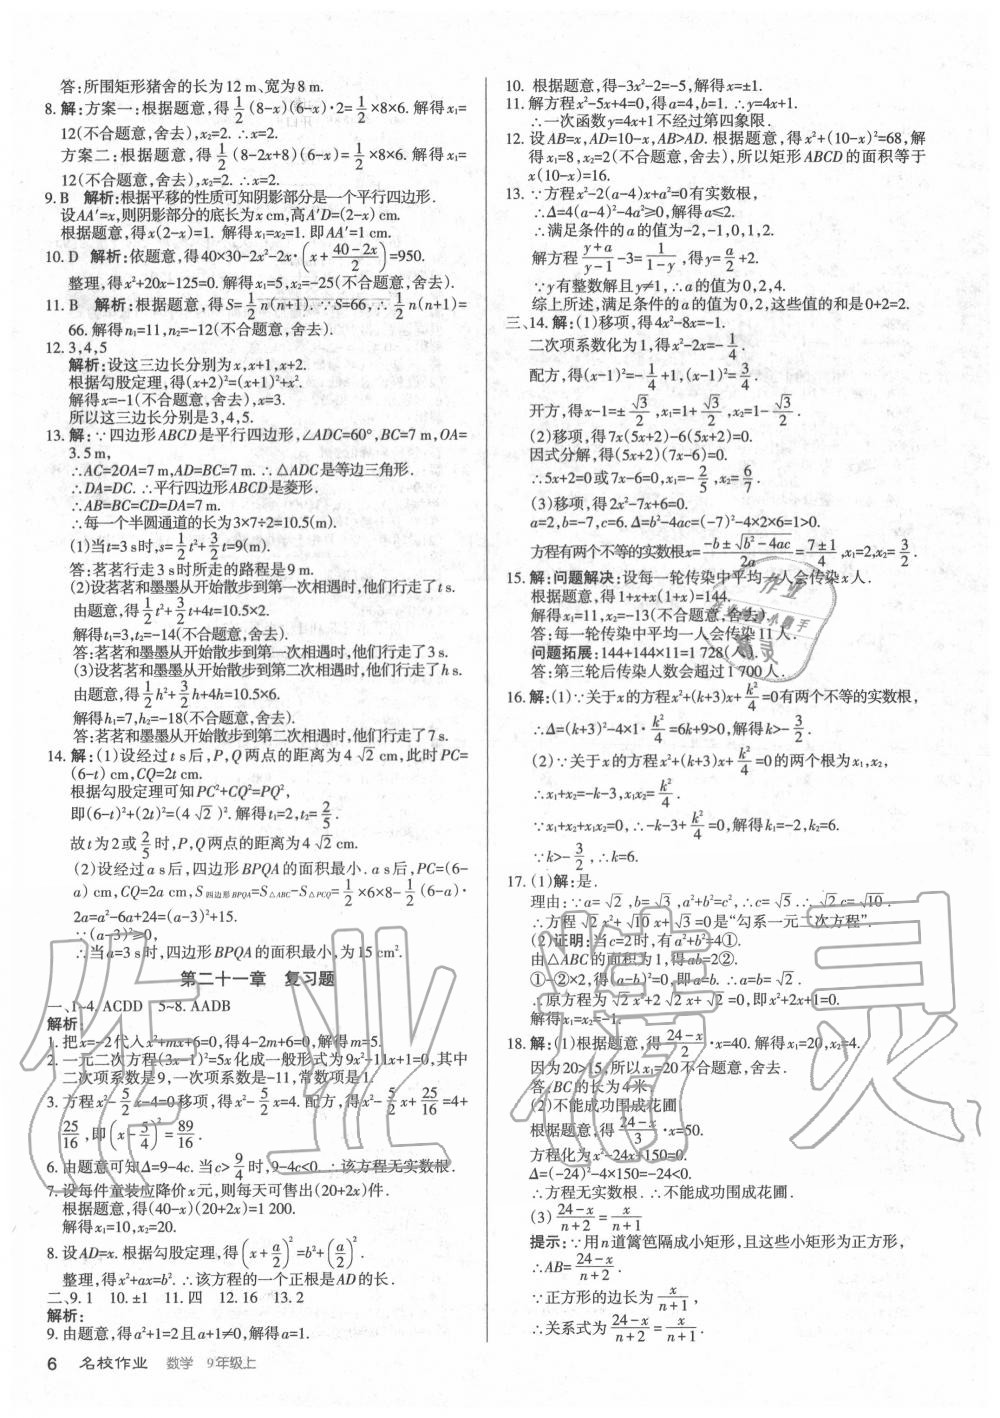 答:所围矩形猪舍的长为12 m、宽为8 m.
8. 解:方案一:根据题意,得 1/2 (8-x)(6-x)·2= 1/2 ×8×6. 解得x₁=
12(不合题意,舍去),x₂=2. ∴x=2.
方案二:根据题意,得 1/2 (8-2x+8)(6-x)= 1/2 ×8×6. 解得x₁=
12(不合题意,舍去),x₂=2. ∴x=2.
9. B 解析:根据平移的性质可知阴影部分是一个平行四边形.
设AA′=x,则阴影部分的底长为x cm,高A′D=(2-x) cm.
根据题意,得x(2-x)=1. 解得x₁=x₂=1. 即AA′=1 cm.
10. D 解析:依题意,得40×30-2x²-2x·(x+ (40-2x)/2)=950.
整理,得x²+20x-125=0. 解得x₁=5,x₂=-25(不合题意,舍去).
11. B 解析:根据题意,得S= 1/2 n(n+1). ∵S=66,∴ 1/2 n(n+1)=
66. 解得n₁=11,n₂=-12(不合题意,舍去).
12. 3,4,5
解析:设这三边长分别为x,x+1,x+2.
根据勾股定理,得(x+2)²=(x+1)²+x².
解得x=-1(不合题意,舍去),x=3.
所以这三边长分别是3,4,5.
13. 解:∵四边形ABCD是平行四边形,∠ADC=60°,BC=7 m,OA=
3.5 m,
∴AC=2OA=7 m,AD=BC=7 m. ∴△ADC是等边三角形.
∴DA=DC. ∴平行四边形ABCD是菱形.
∴AB=BC=CD=DA=7 m.
∴每一个半圆通道的长为3×7÷2=10.5(m).
(1)当t=3 s时,s= 1/2 t²+ 3/2 t=9(m).
答:茗茗行走3 s时所走的路程是9 m.
(2)设茗茗和墨墨从开始散步到第一次相遇时,他们行走了t s.
由题意,得 1/2 t²+ 3/2 t+4t=10.5×2.
解得t₁=3,t₂=-14(不合题意,舍去).
答:茗茗和墨墨从开始散步到第一次相遇时,他们行走了3 s.
(3)设茗茗和墨墨从开始散步到第二次相遇时,他们行走了h s.
由题意,得 1/2 h²+ 3/2 h+4h=10.5×6.
解得h₁=7,h₂=-18(不合题意,舍去).
答:茗茗和墨墨从开始散步到第二次相遇时,他们行走了7 s.
14. 解:(1)设经过t s后,P,Q两点的距离为4√2 cm,此时PC=
(6-t) cm,CQ=2t cm.
根据勾股定理可知PC²+CQ²=PQ²
即(6-t)²+(2t)²=(4√2)². 解得t₁=2,t₂= 2/5.
故t为2或 2/5 时,P,Q两点的距离为4√2 cm.
(2)设经过a s后,四边形BPQA的面积最小. ∴此时,PC=(6-
a) cm,CQ=2a cm,S四边形BPQA=S△ABC-S△PCQ= 1/2 ×6×8- 1/2 (6-a)·
2a=a²-6a+24=(a-3)²+15.
∵(a-3)²≥0,
∴当a=3 s时,四边形BPQA的面积最小,为15 cm².
第二十一章 复习题
一、1~4. ACDD 5~8. AADB
解析:
1. 把x=-2代入x²+mx+6=0,得4-2m+6=0,解得m=5.
2. 一元二次方程(3x-1)²=5x化成一般形式为9x²-11x+1=0,其中
二次项系数是9,一次项系数是-11,常数项是1.
3. 方程x²- 5/2 x-4=0移项,得x²- 5/2 x=4. 配方,得x²- 5/2 x+ 25/16 =4+
25/16 ,即(x- 5/4)²= 89/16.
6. 由题意可知Δ=9-4c. 当c> 9/4 时,9-4c<0. ∴该方程无实数根.
7. 设每件童装应降价x元,则每天可售出(20+2x)件.
根据题意,得(40-x)(20+2x)=1 200.
解得x₁=10,x₂=20.
8. 设AD=x. 根据勾股定理,得(x+ a/2)²=b²+(a/2)².
整理,得x²+ax=b². ∴该方程的一个正根是AD的长.
二、9. 1 10. ±1 11. 四 12. 16 13. 2
解析:
9. 由题意,得a²+1=2且a+1≠0,解得a=1.
6 名校作业 数学 9年级上
10. 根据题意,得-3x²-2=-5,解得x=±1.
11. 解方程x²-5x+4=0,得a=4,b=1. ∴y=4x+1.
∴一次函数y=4x+1不经过第四象限.
12. 设AB=x,AD=10-x,AB>AD. 根据题意,得x²+(10-x)²=68,解
得x₁=8,x₂=2(不合题意,舍去),所以矩形ABCD的面积等于
x(10-x)=16.
13. ∵方程x²-2(a-4)x+a²=0有实数根,
∴Δ=4(a-4)²-4a²≥0,解得a≤2.
∴满足条件的a的值为-2,-1,0,1,2.
解方程 (y+a)/(y-1) -3= 1/(1-y) ,得y= a/2 +2.
∵y有整数解且y≠1,∴a的值为0,2,4.
综上所述,满足条件的a的值为0,2,这些值的和是0+2=2.
三、14. 解:(1)移项,得4x²-8x=-1.
二次项系数化为1,得x²-2x=- 1/4.
配方,得(x-1)²=- 1/4 +1,(x-1)²= 3/4.
开方,得x-1=± √3/2 ,x₁=1+ √3/2 ,x₂=1- √3/2.
(2)移项,得7x(5x+2)-6(5x+2)=0.
因式分解,得(5x+2)(7x-6)=0.
∴5x+2=0或7x-6=0,x₁=- 2/5 ,x₂= 6/7.
(3)移项,得2x²-7x+6=0.
a=2,b=-7,c=6. Δ=b²-4ac=(-7)²-4×2×6=1>0.
方程有两个不等的实数根x= (-b±√(b²-4ac))/2a = (7±1)/4 ,x₁=2,x₂= 3/2.
15. 解:问题解决:设每一轮传染中平均一人会传染x人.
根据题意,得1+x+x(1+x)=144.
解得x₁=11,x₂=-13(不合题意,舍去).
答:每一轮传染中平均一人会传染11人.
问题拓展:144+144×11=1 728(人).
答:第三轮后传染人数会超过1 700人.
16. 解:(1)∵关于x的方程x²+(k+3)x+ k²/4 =0有两个不等的实数根,
∴Δ=(k+3)²-4×1· k²/4 =6k+9>0,解得k>- 3/2.
(2)∵关于x的方程x²+(k+3)x+ k²/4 =0的两个根为x₁,x₂,
∴x₁+x₂=-k-3,x₁x₂= k²/4.
∵x₁+x₂+x₁x₂=0,∴-k-3+ k²/4 =0,解得k₁=-2,k₂=6.
∵k>- 3/2 ,∴k=6.
17. (1)解:是.
理由:∵a=√2,b=√3,a²+b²=c²,∴c=√5. ∴√2 c=√10.
∴方程√2 x²+√10 x+√3=0是“勾系一元二次方程”.
(2)证明:当c=2时,有a²+b²=4①.
由△ABC的面积为1,得ab=2②.
①-②×2,得(a-b)²=0,即a=b. ∴a=b=√2.
∴原方程为√2 x²+2√2 x+√2=0,即x²+2x+1=0.
解得x₁=x₂=-1.
18. 解:(1)根据题意,得 (24-x)/2 ·x=40. 解得x₁=20,x₂=4.
因为20>15,所以x₁=20不合题意,舍去.
答:BC的长为4米.
(2)不能成功围成花圃.
根据题意,得 (24-x)/3 ·x=50.
方程化为x²-24x+150=0.
Δ=(-24)²-4×150=-24<0.
∴方程无实数根. ∴不能成功围成花圃.
(3) (24-x)/(n+2) = x/(n+1)
提示:∵用n道篱笆隔成小矩形,且这些小矩形为正方形,
∴AB= (24-x)/(n+2).
∵正方形的边长为 x/(n+1) ,
∴关系式为 (24-x)/(n+2) = x/(n+1).
作业精灵